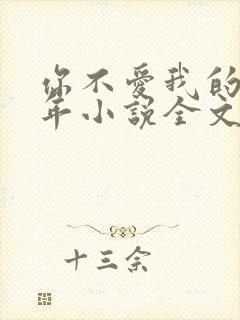 你不爱我的
年小说全文
十三余